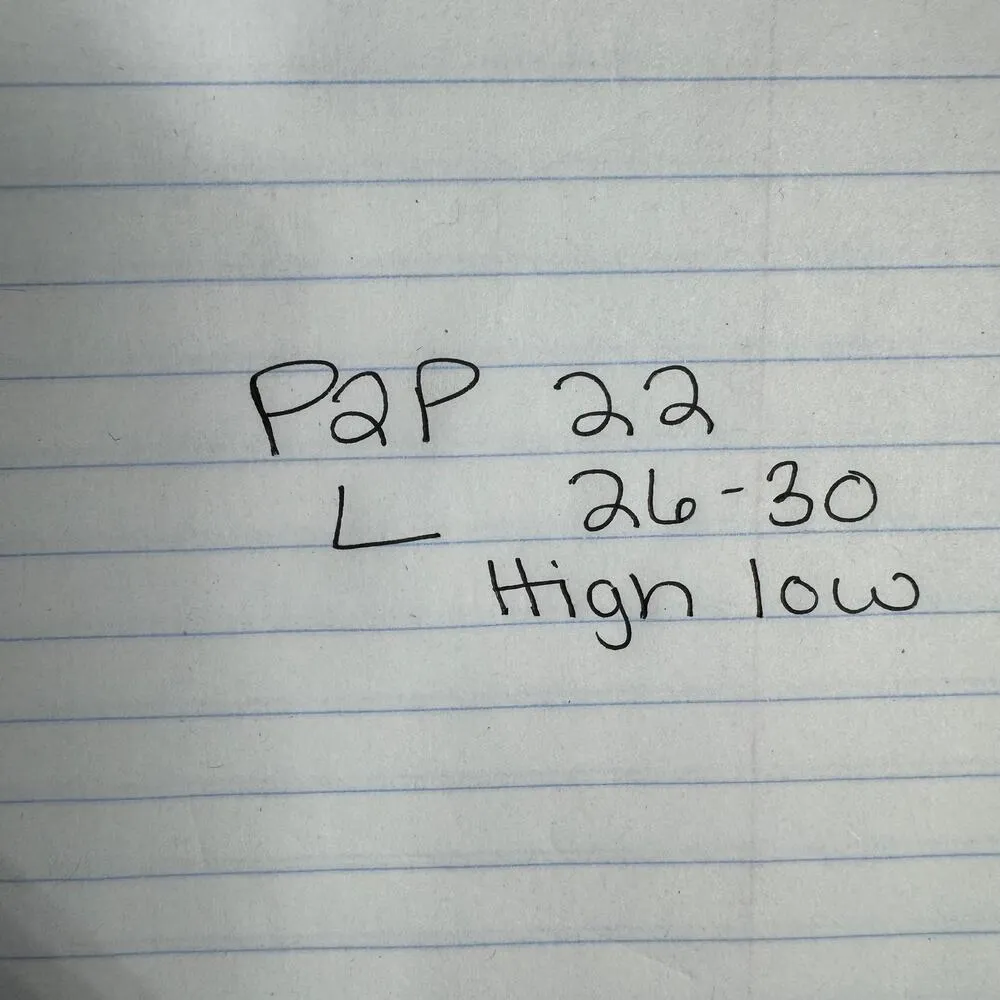 P2P 22
L 26-30
High low